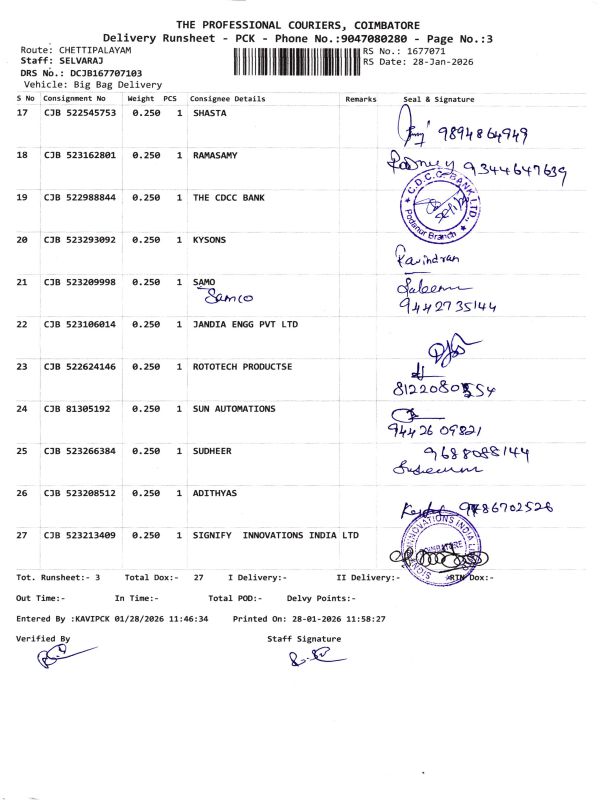 THE PROFESSIONAL COURIERS, COIMBATORE
Delivery Runsheet - PCK - Phone No.:9047080280 - Page No.:3
Route: CHETTIPALAYAM
RS No.: 1677071
Staff: SELVARAJ
RS Date: 28-Jan-2026
DRS No.: DCJB167707103
Vehicle: Big Bag Delivery
S No Consignment No Weight PCS Consignee Details Remarks Seal & Signature
17 CJB 522545753 0.250 1 SHASTA
9894864949
18 CJB 523162801 0.250 1 RAMASAMY
9344647639
19 CJB 522988844 0.250 1 THE CDCC BANK
C.D.C.C. BANK LTD.,
Podanur Branch
20 CJB 523293092 0.250 1 KYSONS
Ravindran
21 CJB 523209998 0.250 1 SAMO
Samco
Saleem
9442735144
22 CJB 523106014 0.250 1 JANDIA ENGG PVT LTD
23 CJB 522624146 0.250 1 ROTOTECH PRODUCTSE
24 CJB 81305192 0.250 1 SUN AUTOMATIONS
9442609821
25 CJB 523266384 0.250 1 SUDHEER
9688088144
26 CJB 523208512 0.250 1 ADITHYAS
27 CJB 523213409 0.250 1 SIGNIFY INNOVATIONS INDIA LTD
Tot. Runsheet:- 3 Total Dox:- 27 I Delivery:- II Delivery:- RTN Dox:-
Out Time:- In Time:- Total POD:- Delvy Points:-
Entered By :KAVIPCK 01/28/2026 11:46:34 Printed On: 28-01-2026 11:58:27
Verified By Staff Signature